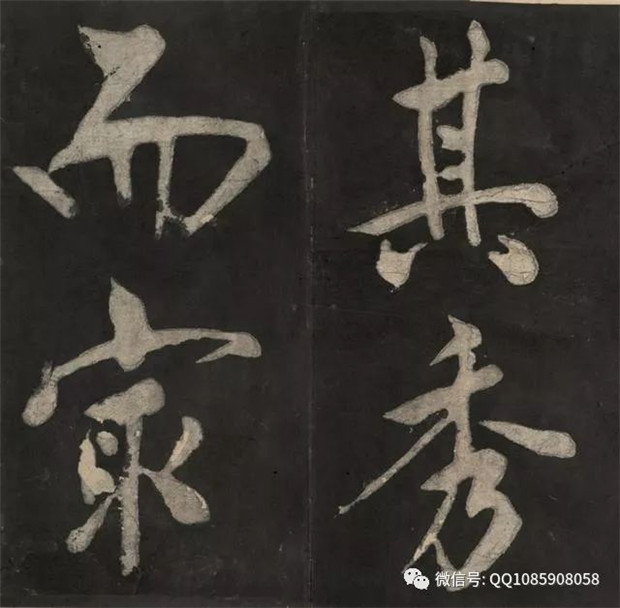 其秀
而最
微信号: QQ1085908058